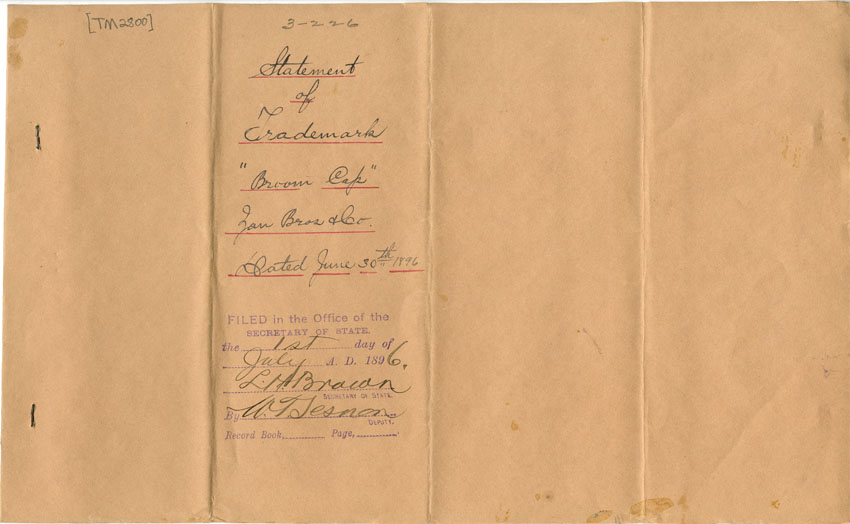 [TM2300]
3-226
Statement
of
Trademark
"Broom Cap"
Zan Bros & Co.
Dated June 30th 1896
FILED in the Office of the
SECRETARY OF STATE.
the 1st day of
July A. D. 1896.
L. H. Brown
SECRETARY OF STATE.
By
DEPUTY.
Record Book, Page,